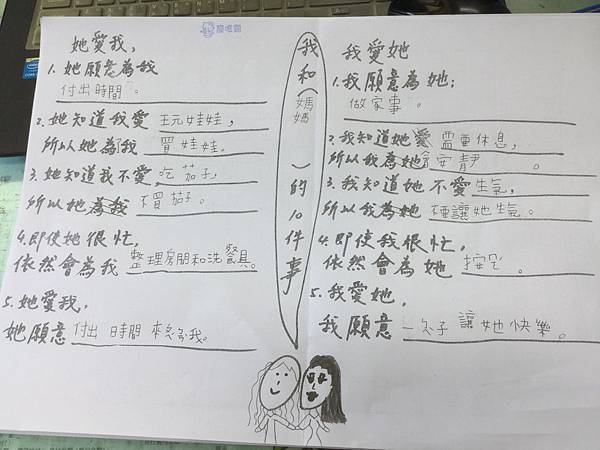 她愛我,
1. 她願意為我
付出時間。
2. 她知道我愛 玩娃娃,
所以她為我 買娃娃。
3. 她知道我不愛, 吃茄子,
所以她為我 不買茄子。
4. 即使她很忙,
依然會為我 整理房間和洗餐具。
5. 她愛我,
她願意 付出時間來我。
我和(媽媽)的10件事
我愛她
1. 我願意為她;
做家事。
2. 我知道她愛 需要休息,
所以我為她 安靜。
3. 我知道她不愛 生氣,
所以我為她 讓她生氣。
4. 即使我很忙,
依然會為她
5. 我愛她,
我願意 一次子讓她快樂。